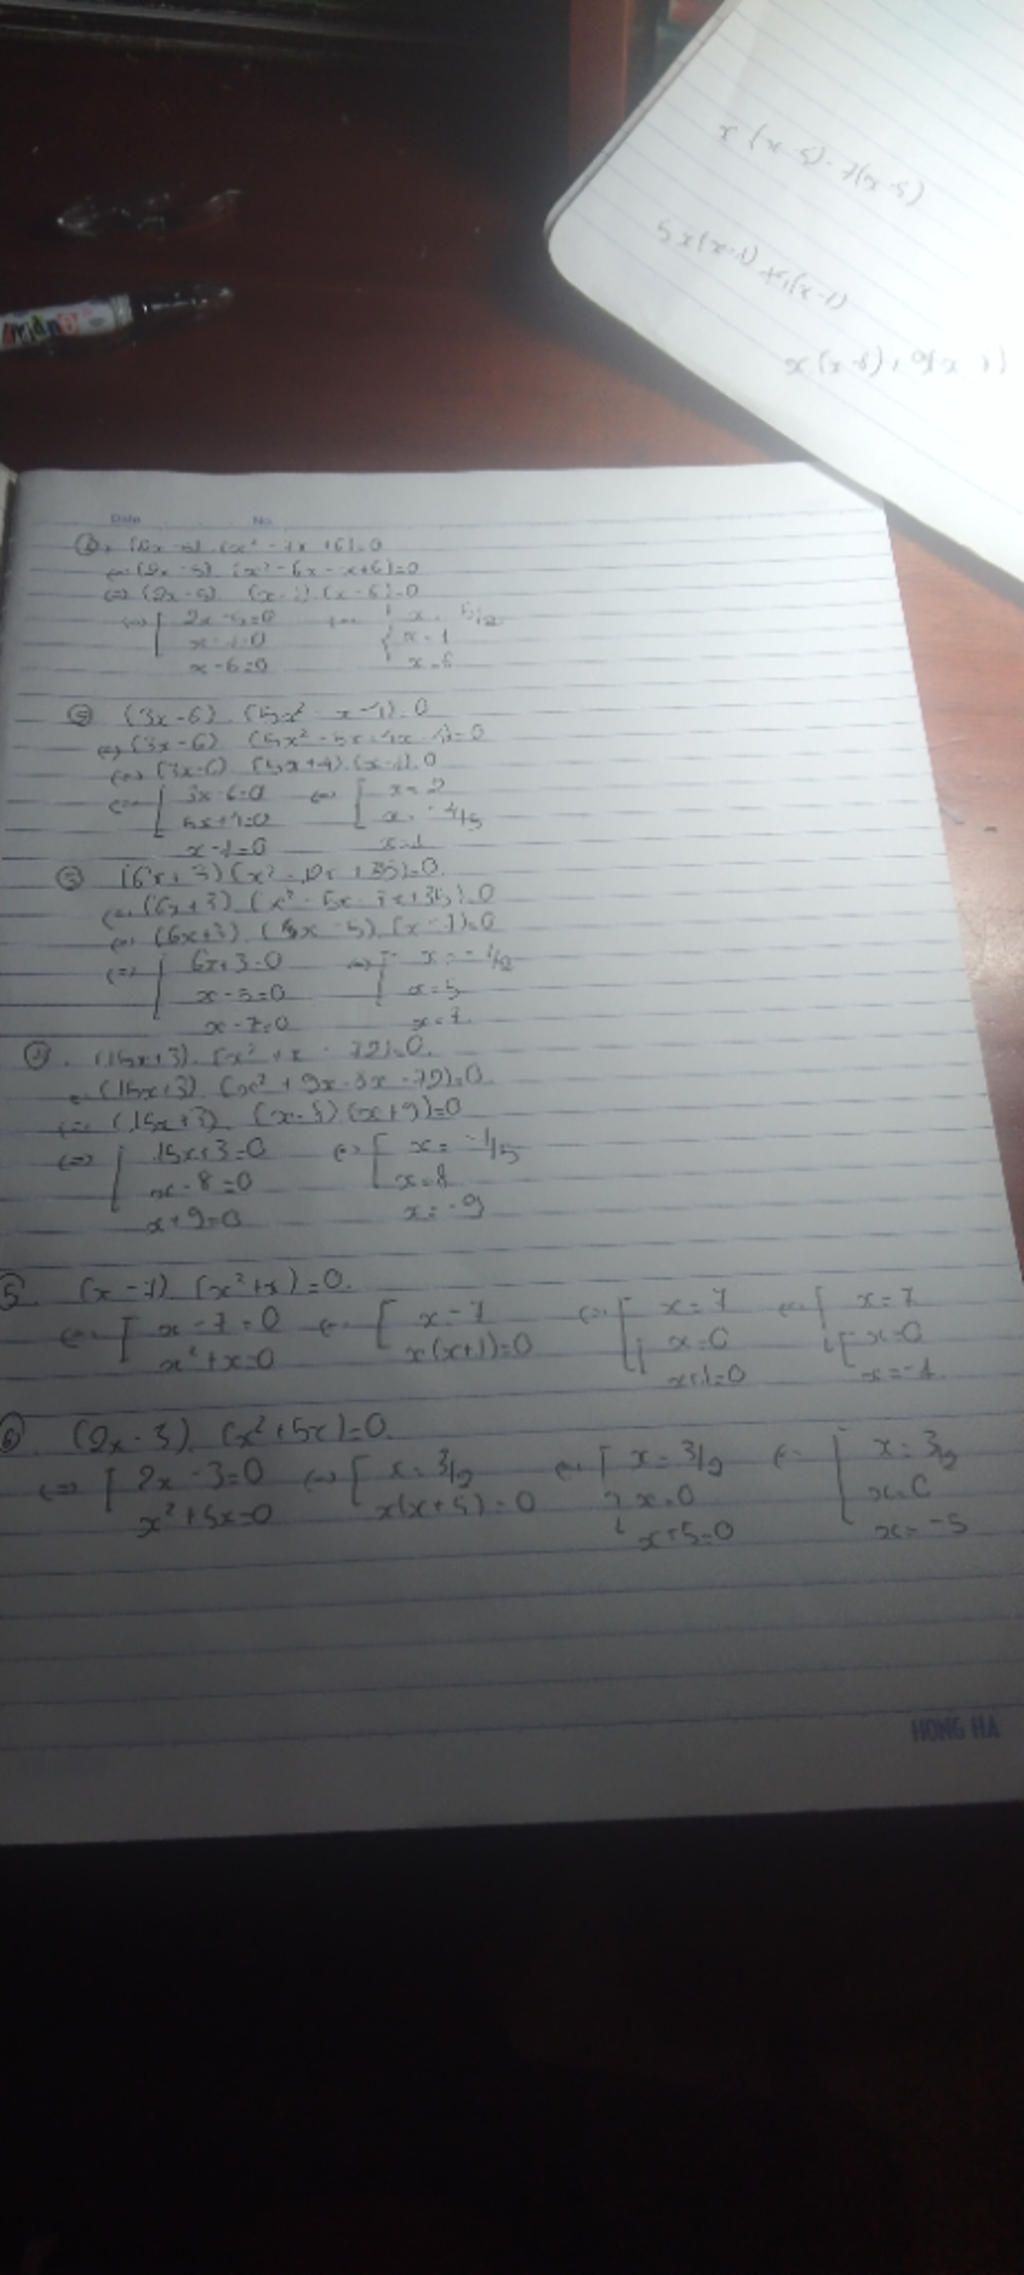 x(x-5)-7(x-5)
5x(x-1)+4(x-1)
x(x-8)+9(x
Date No.
(2x-5).(x²-7x+6)=0
⇔(2x-5).(x²-6x-x+6)=0
⇔(2x-5).(x-1).(x-6)=0
⇔[ 2x-5=0 ⇔ [ x=5/2
x-1=0 x=1
x-6=0 x=6
② (3x-6).(5x²-x-4)=0
⇔(3x-6).(5x²-5x+4x-4)=0
⇔(3x-6).(5x+4).(x-1)=0
⇔[ 3x-6=0 ⇔ [ x=2
5x+4=0 x=-4/5
x-1=0 x=1
③ (6x+3)(x²-12x+35)=0
⇔(6x+3).(x²-5x-7x+35)=0
⇔(6x+3).(x-5).(x-7)=0
⇔[ 6x+3=0 ⇔[ x=-1/2
x-5=0 x=5
x-7=0 x=7
④. (15x+3).(x²+x-72)=0.
⇔(15x+3).(x²+9x-8x-72)=0
⇔(15x+3).(x-8)(x+9)=0
⇔[ 15x+3=0 ⇔[ x=-1/5
x-8=0 x=8
x+9=0 x=-9
⑤. (x-7)(x²+x)=0.
⇔[ x-7=0 ⇔[ x=7 ⇔[ x=7 ⇔[ x=7
x²+x=0 x(x+1)=0 [ x=0 [ x=0
x+1=0 x=-1.
⑥. (2x-3).(x²+5x)=0
⇔[ 2x-3=0 ⇔[ x=3/2 ⇔[ x=3/2 ⇔[ x=3/2
x²+5x=0 x(x+5)=0 [ x=0 x=0
x+5=0 x=-5
HONG HA